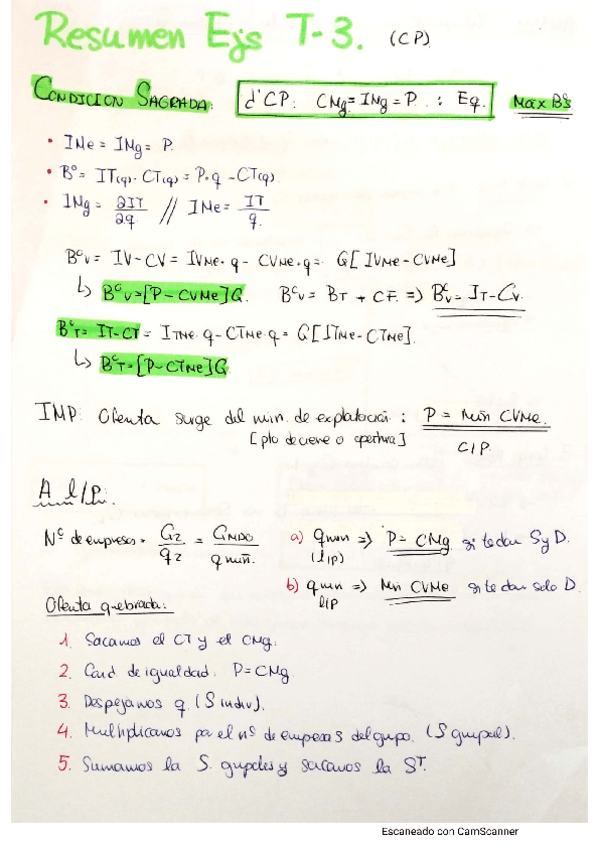 Resumen Ejs T-3. (CP)
CONDICION SAGRADA: d'CP: CMg = IMg = P. : Eq. Max Bºs
• IMe = IMg = P.
• Bº = IT(q) - CT(q) = P·q - CT(q)
• IMg = ∂IT/∂q // IMe = IT/q.
Bºv = IV - CV = IVMe·q - CVMe·q = Q[IVMe - CVMe]
↳ Bºv = [P - CVMe]Q. Bºv = BT + CF. => Bºv = IT - Cv.
BºT = IT - CT = ITMe·q - CTMe·q = Q[ITMe - CTMe].
↳ BºT = [P - CTMe]Q
IMP: Oferta surge del min. de explotación : P = Mín CVMe.
[pto de cierre o apertura] C/P.
A l/P:
Nº de empresas = Q2/q2 = QMDO/q min. a) qmin => P = CMg si te dan S y D.
(l/P)
b) qmin => Min CVMe si te dan solo D.
l/P
Oferta quebrada:
1. Sacamos el CT y el CMg.
2. Cond de igualdad: P = CMg
3. Despejamos q. (S indiv).
4. Multiplicamos por el nº de empresas del grupo. (S grupal).
5. Sumamos la S. grupales y sacamos la Sᵀ.
Escaneado con CamScanner